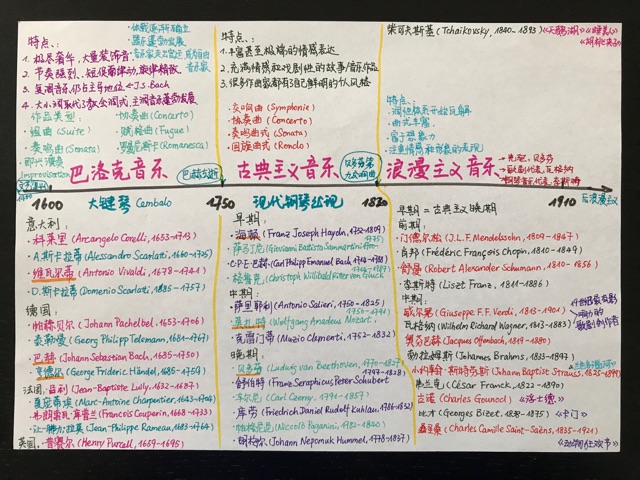 特点：
·体裁逐渐确立
·器乐蓬勃发展
1. 极尽奢华，大量装饰音
2. 节奏强到，短促而律动，旋律精致
3. 复调音乐仍占主导地位←J.S.Bach
4. 大小调取代了教会调式，主调音乐蓬勃发展
作品类型：
·协奏曲(Concerto)
·组曲(Suite)
·赋格曲(Fugue)
·奏鸣曲(Sonata)
·罗曼尼斯卡(Romanesca)
即兴演奏
Improvisation
巴洛克音乐
巴赫去逝
特点：
1. 丰富甚至极端的情感表达
2. 充满情感和戏剧性的故事/音乐作品
3. 很多作曲家都有自己鲜明的个人风格
·交响曲(Symphonie)
·协奏曲(Concerto)
·奏鸣曲式(Sonata)
·回旋曲式(Rondo)
古典主义音乐
贝多芬第九交响曲
柴可夫斯基(Tchaikovsky, 1840-1893)
《天鹅湖》《睡美人》
《胡桃夹子》
特点：
·调性体系开始瓦解
·曲式丰富
·富于想象力
·注重情感和形象的表现
浪漫主义音乐
→先驱：贝多芬
→歌剧代表：瓦格纳
→钢琴音乐代表：李斯特
1600
大键琴 Cambalo
1750
现代钢琴出现
1830
1910
后浪漫主义
意大利：
·科莱里(Arcangelo Corelli, 1653-1713)
·A.斯卡拉蒂(Alessandro Scarlatti, 1660-1725)
·维瓦尔蒂(Antonio Vivaldi, 1678-1741)
·D.斯卡拉蒂(Domenico Scarlatti, 1685-1757)
德国：
·帕赫贝尔(Johann Pachelbel, 1653-1706)
·泰勒曼(Georg Philipp Telemann, 1681-1767)
·巴赫(Johann Sebastian Bach, 1685-1750)
·亨德尔(George Frideric Händel, 1685-1759)
法国：·吕利(Jean-Baptiste Lully, 1632-1687)
·夏庞蒂埃(Marc-Antoine Charpentier, 1643-1704)
·弗朗索瓦·库普兰(François Couperin, 1668-1733)
·让-菲力·拉莫(Jean-Philippe Rameau, 1683-1764)
英国：·普赛尔(Henry Purcell, 1659-1695)
早期：
·海顿(Franz Joseph Haydn, 1732-1809)
·萨马丁尼(Giovanni Battista Sammartini, 1775)
·C·P·E·巴赫(Carl Philipp Emanuel Bach, 1714-1788)
·格鲁克(Christoph Willibald Ritter von Glück, 1714-1787)
中期：
·萨里耶利(Antonio Salieri, 1750-1825)
·莫扎特(Wolfgang Amadeus Mozart, 1756-1791)
·克雷门蒂(Muzio Clementi, 1752-1832)
晚期：
·贝多芬(Ludwig van Beethoven, 1770-1827)
·舒伯特(Franz Seraphicus Peter Schubert, 1797-1828)
·车尔尼(Carl Czerny, 1791-1857)
·库劳(Friedrich Daniel Rudolf Kuhlau, 1786-1832)
·帕格尼尼(Niccolò Paganini, 1782-1840)
·胡梅尔(Johann Nepomuk Hummel, 1778-1837)
早期 = 古典主义晚期
前期：
·门德尔松(J.L.F. Mendelssohn, 1809-1847)
·肖邦(Frédéric François Chopin, 1810-1849)
·舒曼(Robert Alexander Schumann, 1810-1856)
·李斯特(Liszt Franz, 1811-1886)
中期：
·威尔第(Giuseppe F.F. Verdi, 1813-1901)
·瓦格纳(Wilhelm Richard Wagner, 1813-1883)
19世纪最有影响力的歌剧创作者
·奥芬巴赫(Jacques Offenbach, 1819-1880)
·勃拉姆斯(Johannes Brahms, 1833-1897)
·小约翰·施特劳斯(Johann Baptist Strauss, 1825-1899)
·弗兰克(César Franck, 1822-1890)
·古诺(Charles Gounod) 《浮士德》
·比才(Georges Bizet, 1838-1875) 《卡门》
·圣桑(Charles Camille Saint-Saëns, 1835-1921)
《动物狂欢节》